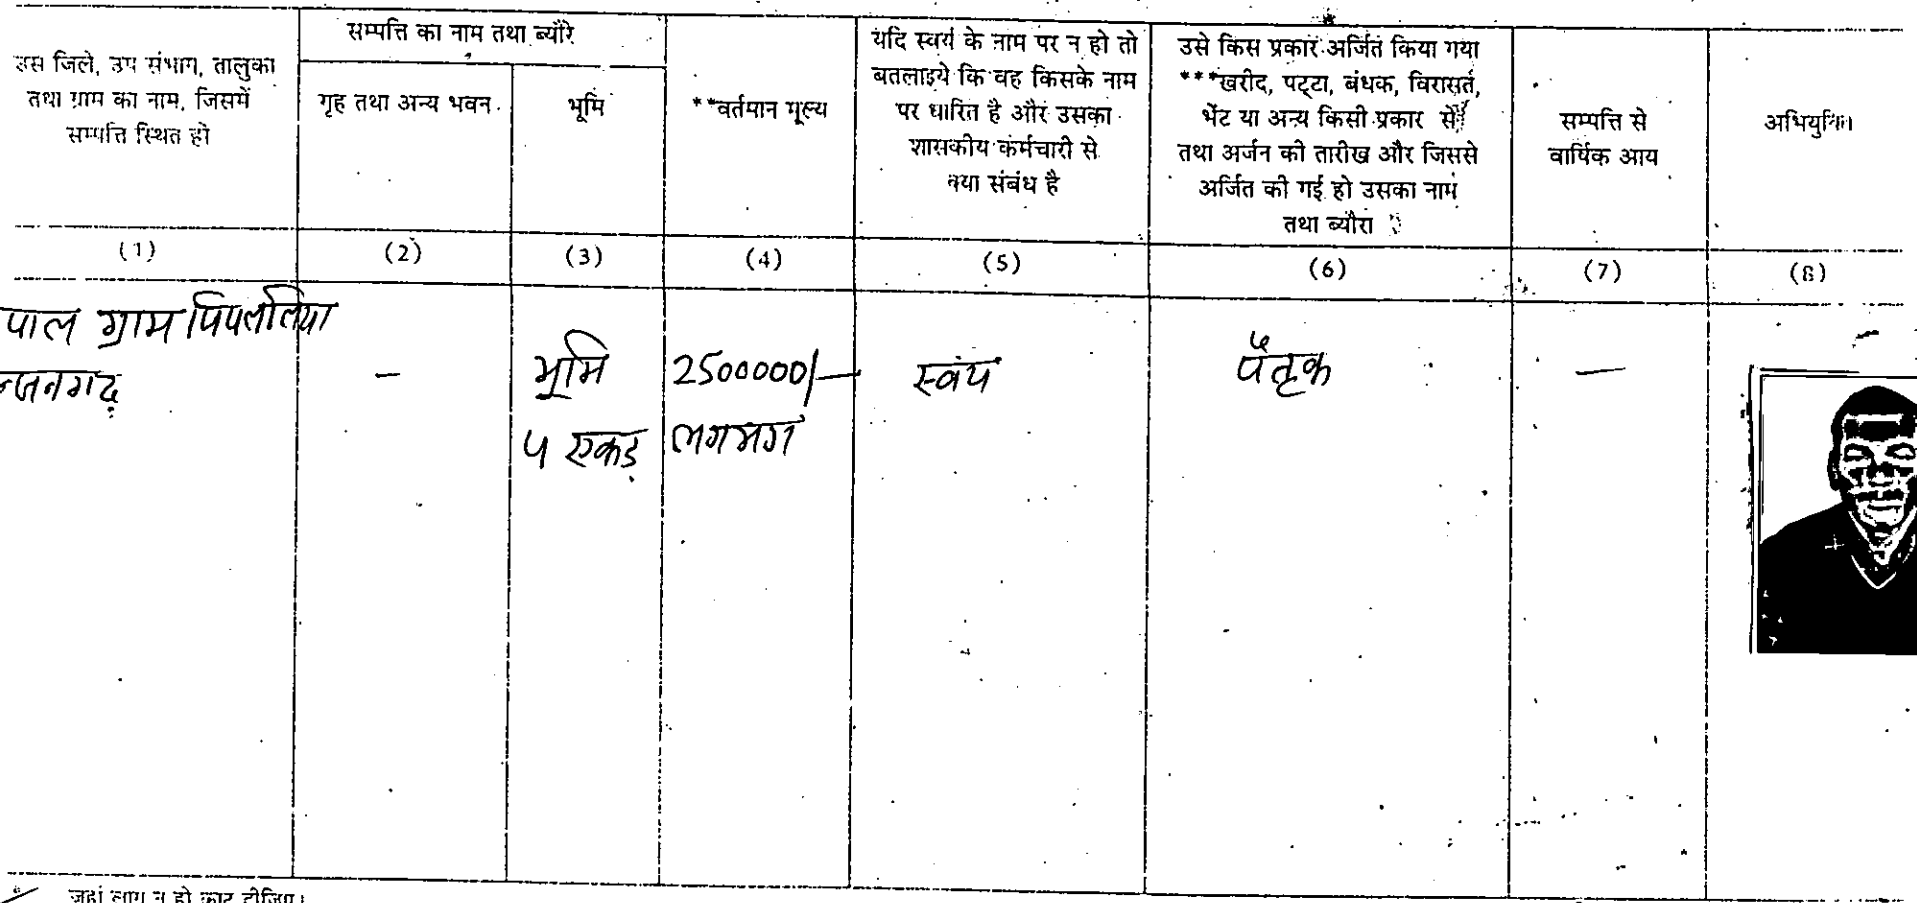 उस जिले, उप संभाग, तालुका
तथा ग्राम का नाम, जिसमें
सम्पत्ति स्थित हो
सम्पत्ति का नाम तथा ब्यौरे
गृह तथा अन्य भवन
भूमि
**वर्तमान मूल्य
यदि स्वयं के नाम पर न हो तो
बतलाइये कि वह किसके नाम
पर धारित है और उसका
शासकीय कर्मचारी से
क्या संबंध है
उसे किस प्रकार अर्जित किया गया
***खरीद, पट्टा, बंधक, विरासत,
भेंट या अन्य किसी प्रकार से
तथा अर्जन की तारीख और जिससे
अर्जित की गई हो उसका नाम
तथा ब्यौरा
सम्पत्ति से
वार्षिक आय
अभियुक्ति
(1) (2) (3) (4) (5) (6) (7) (8)
पाल ग्राम पिपलिया
-
भूमि 2500000/-
स्वंय
पैतृक
-
५ एकड़ लगभग
जहां लागू न हो काट दीजिए।